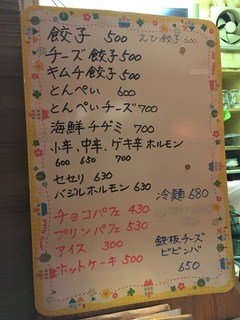 餃子 500 えび餃子 600
チーズ餃子 500
キムチ餃子 500
とんぺい 600
とんぺいチーズ 700
海鮮チヂミ 700
小辛、中辛、ゲキ辛ホルモン
600 650 700
セセリ 630
バジルホルモン 630
冷麺 680
チョコパフェ 430
プリンパフェ 530
アイス 300
ホットケーキ 500
鉄板チーズ
ビビンバ
650